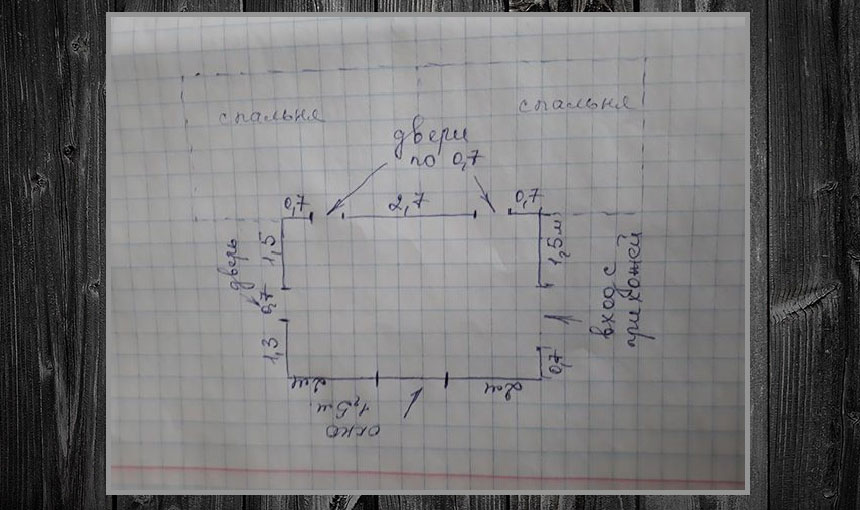 спальня
спальня
двери
по 0,7
0,7
2,7
0,7
дверь
1,5
1,5м
0,7
вход с
прихожей
1,3
0,7
2м
2м
1,5м
окно